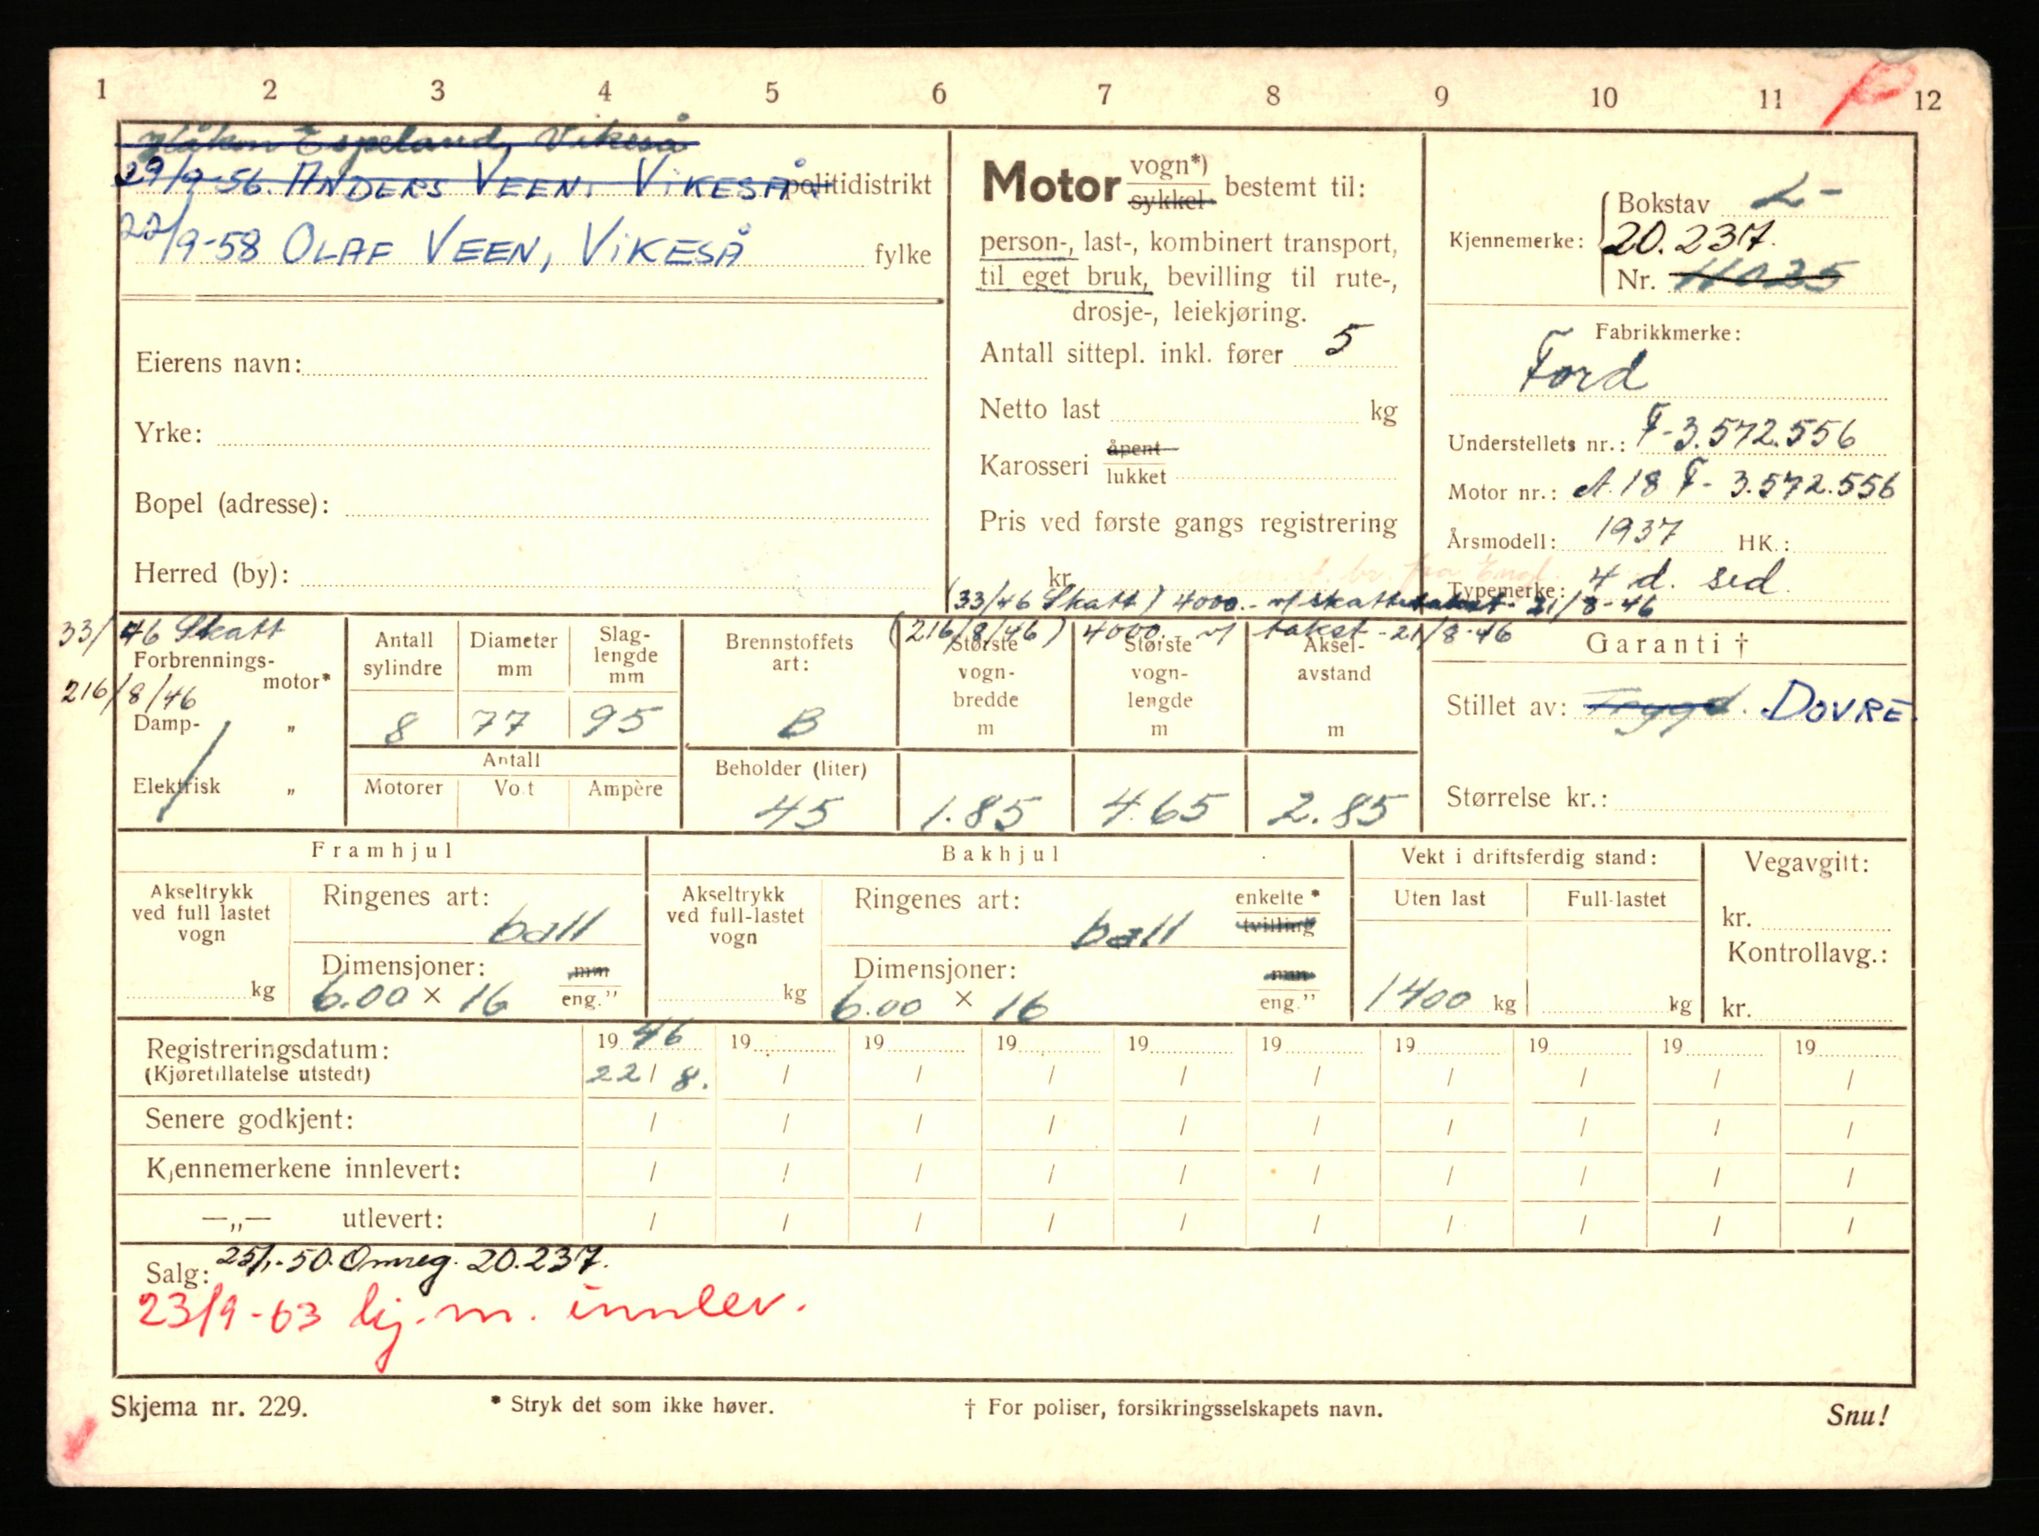 1 2 3 4 5 6 7 8 9 10 11 12
Håkon Espeland, Vikeså
29/9-56. ANDERS VEEN, VIKESÅ. politidistrikt
22/9-58 OLAF VEEN, VIKESÅ fylke
Eierens navn:
Yrke:
Bopel (adresse):
Herred (by):
Motor vogn*) sykkel bestemt til:
person-, last-, kombinert transport,
til eget bruk, bevilling til rute-,
drosje-, leiekjøring.
Antall sittepl. inkl. fører 5
Netto last kg
Karosseri åpent lukket
Pris ved første gangs registrering
kr.
(33/46 Skatt) 4000.- v/ skattetakst 21/8-46
(216/8/46) 4000.- v/ takst - 21/8-46
Kjennemerke: Bokstav L-
20.237.
Nr. 11035
Fabrikkmerke:
Ford
Understellets nr.: F-3.572.556
Motor nr.: A.18 F- 3.572.556
Årsmodell: 1937 HK.:
Typemerke: 4 d. sed
33/46 Skatt
Forbrennings-motor*
216/8/46
Damp- „
Elektrisk „
Antall sylindre 8
Diameter mm 77
Slaglengde mm 95
Antall
Motorer Volt Ampère
Brennstoffets art: B
Beholder (liter) 45
Største vogn-bredde m 1.85
Største vogn-lengde m 4.65
Aksel-avstand m 2.85
Garanti †
Stillet av: Trygd. DOVRE.
Størrelse kr.:
Framhjul
Akseltrykk ved full lastet vogn kg
Ringenes art: ball
Dimensjoner: 6.00 × 16 mm eng.”
Bakhjul
Akseltrykk ved full-lastet vogn kg
Ringenes art: ball enkelte* tvilling
Dimensjoner: 6.00 × 16 mm eng.”
Vekt i driftsferdig stand:
Uten last Full-lastet
1400 kg kg
Vegavgift:
kr.
Kontrollavg.:
kr.
Registreringsdatum: 19 46 19 19 19 19 19 19 19 19 19
(Kjøretillatelse utstedt) 22/8. / / / / / / / / /
Senere godkjent: / / / / / / / / / /
Kjennemerkene innlevert: / / / / / / / / / /
—„— utlevert: / / / / / / / / / /
Salg: 25/1-50. Omreg. 20.237.
23/9-63 kj.m. innlev.
Skjema nr. 229.
* Stryk det som ikke høver.
† For poliser, forsikringsselskapets navn.
Snu!